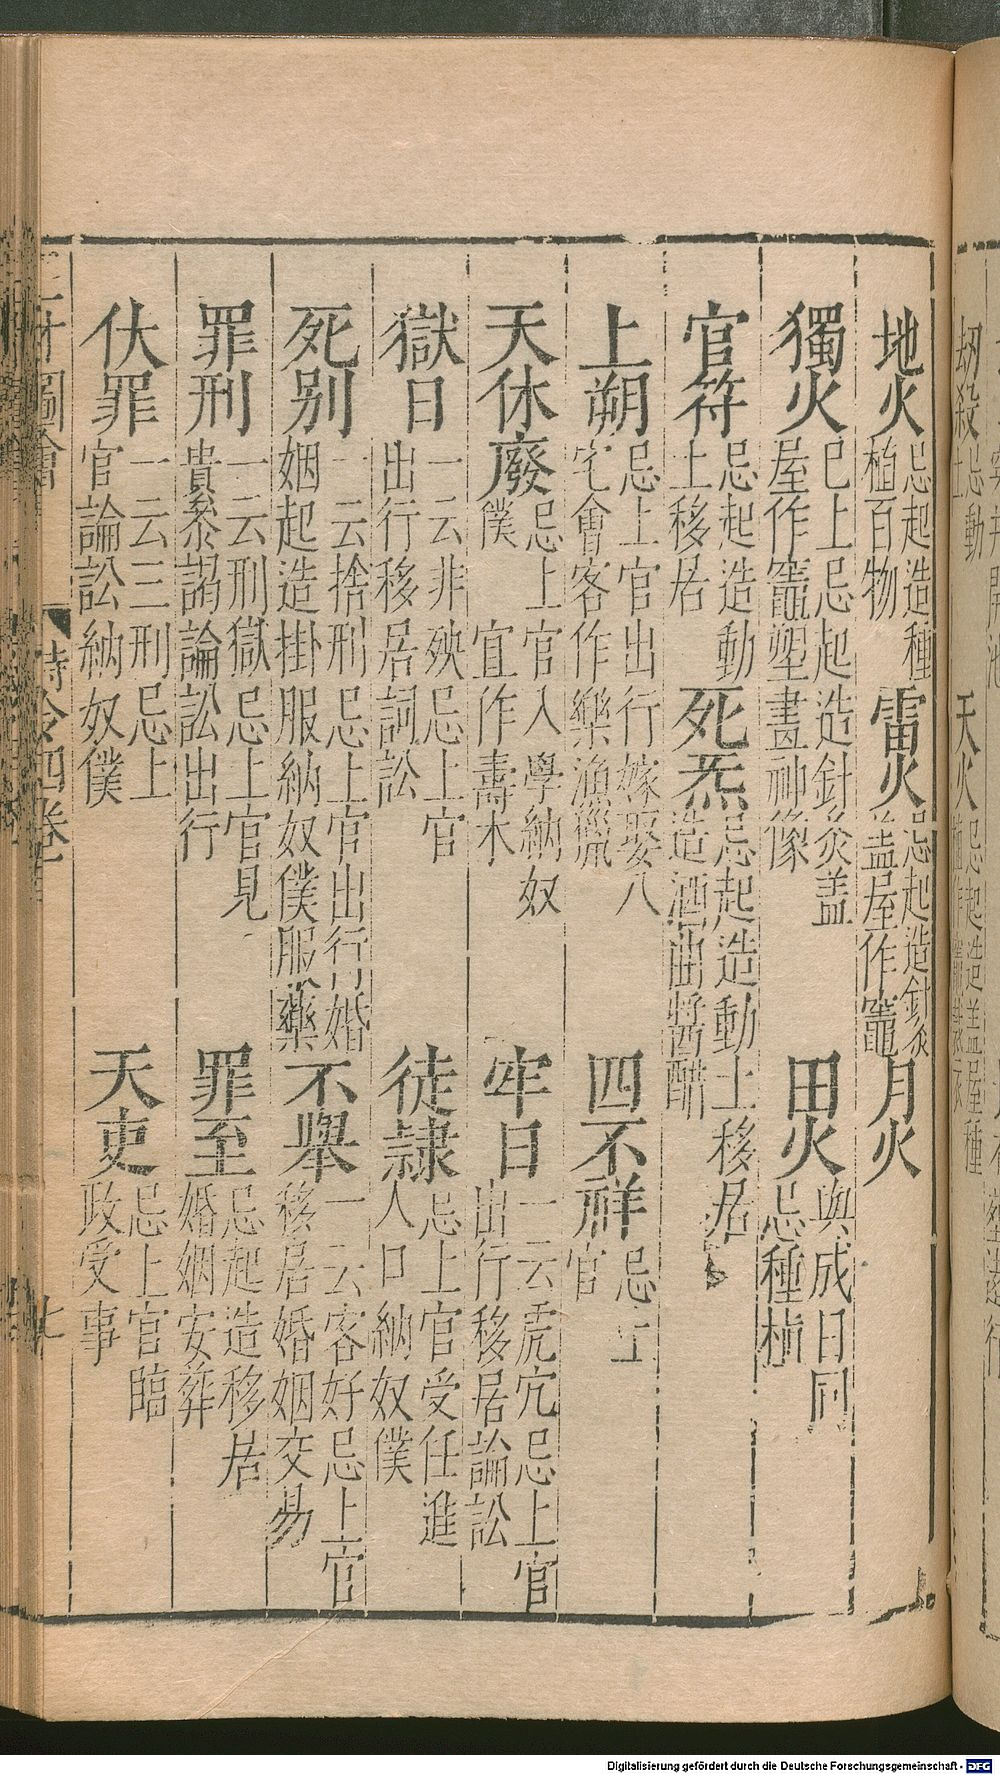 地火忌起造種植百物 雷火忌起造針灸蓋屋作竈 月火
獨火已上忌起造針灸蓋屋作竈塑畫神像 田火與成日同忌種植
官符忌起造動土移居 死炁忌起造動土移居造酒曲醬醋
上朔忌上官出行嫁娶入宅會客作樂漁獵 四不祥忌上官
天休廢忌上官入學納奴僕 宜作壽木 牢日一云虎穴忌上官出行移居論訟
獄日一云非殃忌上官出行移居詞訟 徒隸忌上官受任進人口納奴僕
死别一云捨刑忌上官出行婚姻起造掛服納奴僕服藥 不舉一云客好忌上官移居婚姻交易
罪刑一云刑獄忌上官見貴參謁論訟出行 罪至忌起造移居婚姻安葬
伏罪一云三刑忌上官論訟納奴僕 天吏忌上官臨政受事
圖會 時令四卷 七
劫殺忌動土 天火忌起造蓋屋種
Digitalisierung gefördert durch die Deutsche Forschungsgemeinschaft - DFG